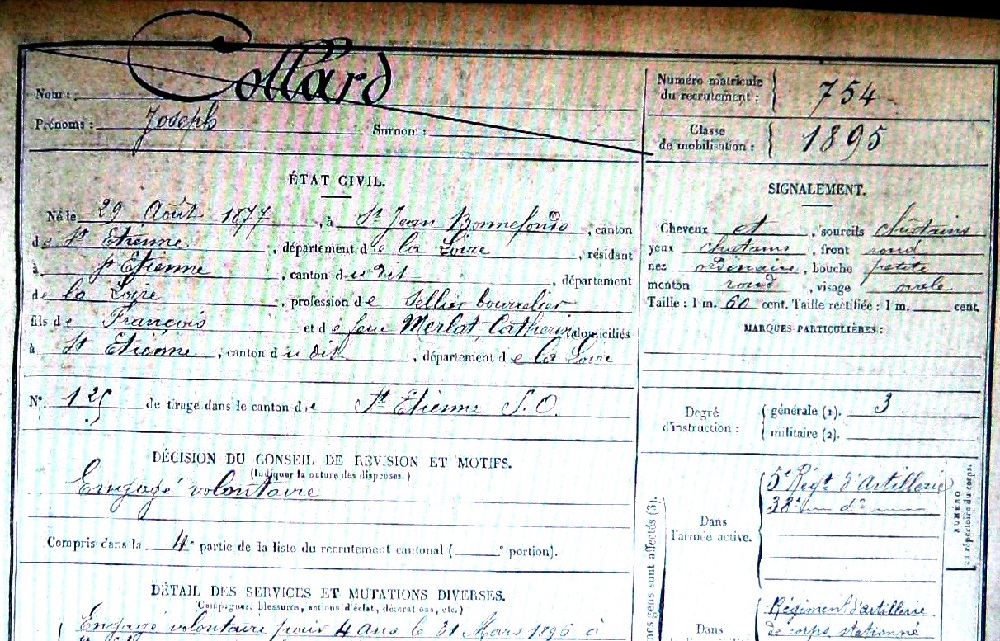 Nom : Collard
Prénoms : Joseph Surnom :
Numéro matricule
du recrutement : 754
Classe
de mobilisation : 1895
ÉTAT CIVIL.
Né le 29 Août 1877, à St Jean Bonnefonds, canton
de St Etienne, département de la Loire, résidant
à St Etienne, canton du dit, département
de la Loire, profession de Sellier bourrelier
fils de François et de feue Merlat Catherine domiciliés
à St Etienne, canton du dit, département de la Loire
N° 125 de tirage dans le canton de St Etienne S. O.
DÉCISION DU CONSEIL DE REVISION ET MOTIFS.
(Indiquer la nature des dispenses.)
Engagé volontaire
Compris dans la 4e partie de la liste du recrutement cantonal ( e portion).
DÉTAIL DES SERVICES ET MUTATIONS DIVERSES.
(Campagnes, blessures, actions d'éclat, décorations, etc.)
Engagé volontaire pour 4 ans le 31 Mars 1896 à
SIGNALEMENT.
Cheveux et, sourcils châtains
yeux chatains, front rond
nez ordinaire, bouche petite
menton rond, visage ovale
Taille : 1 m. 60 cent. Taille rectifiée : 1 m. cent.
MARQUES PARTICULIÈRES :
Degré
d'instruction :
générale (1). 3
militaire (2).
Dans
l'armée active.
5e Régt d'artillerie
38e
NUMÉRO
au répertoire du corps.
gens sont affectés (3).
Dans
Régiment d'artillerie
de corps stationné